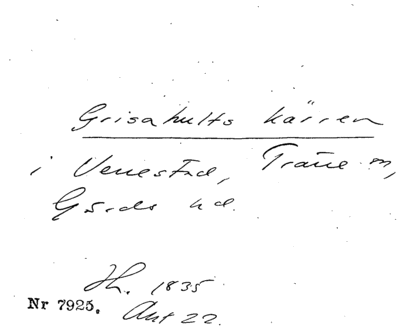 Grisahults kärren
i Venestad, Träne sn,
Gärds hd.
Jh. 1835
Nr 7925. Akt 22.